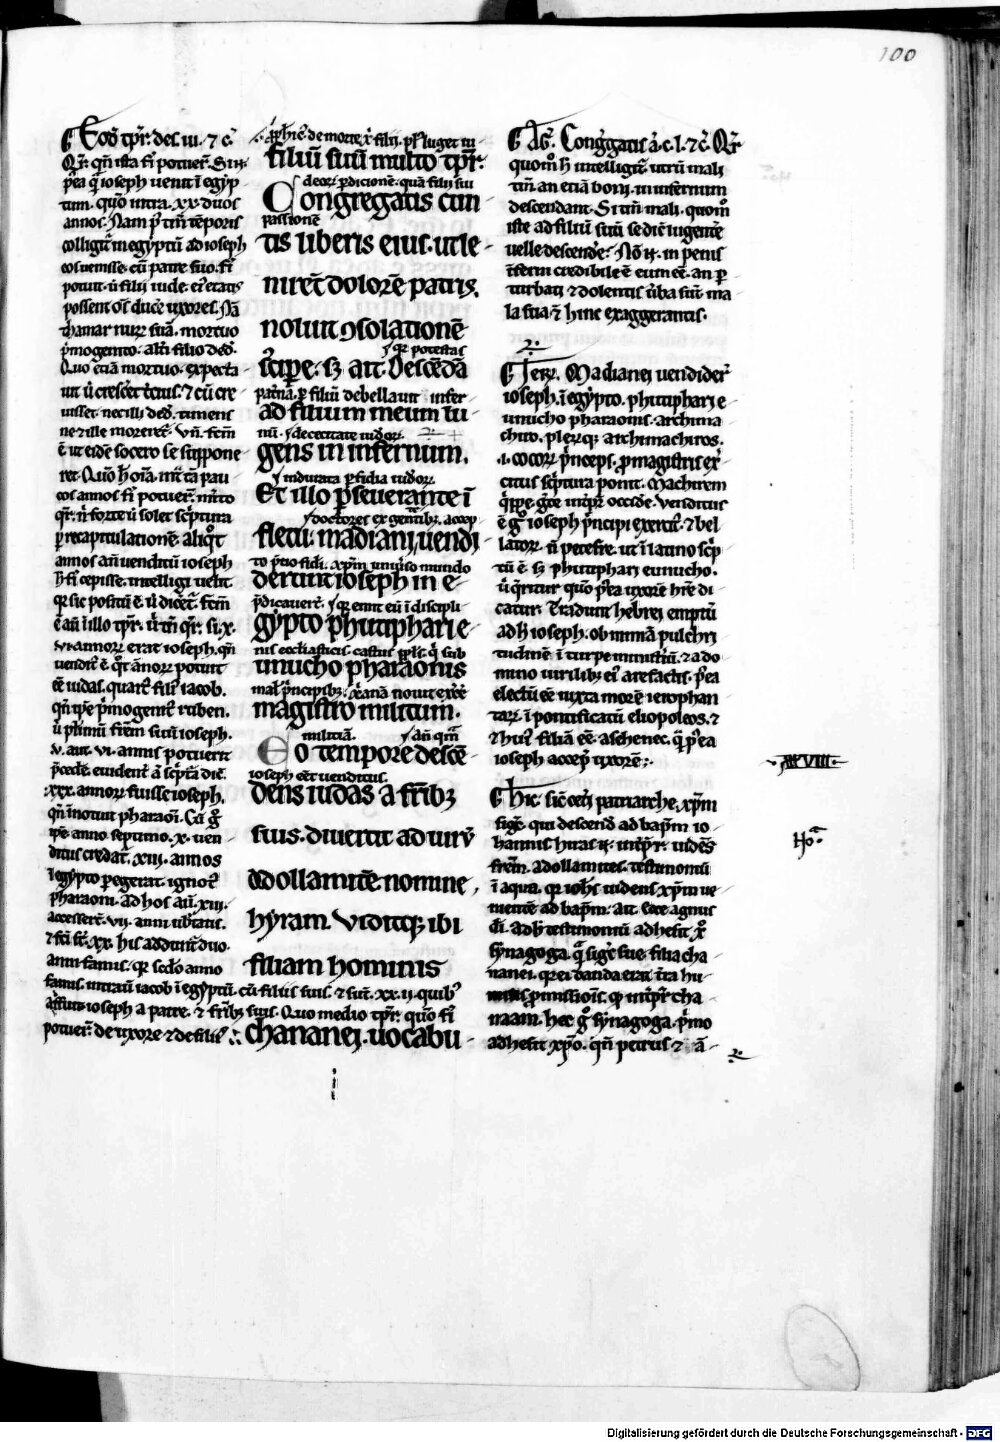 100
Eoď tp̄r. des. iu. ⁊ c̄.
Qr̄. qn̄ ista fi potuer̄. Si n̄.
p̄ea q̄ ioseph uenit ī egyp
tum. quo intra .xx. duos
annos. Nam p̄ tm̄ tēporis
colligit̄ in egyptū ad ioseph
eos uenisse. cū patre suo. fi
potuit. ū filii iude. ei etatis
possent os duce uxores. Nā
thamar nurꝝ suā. mortuo
p̄mogenito. alti filio ded.
Quo etiā mortuo. expecta
uit ū cresc̄et tcius. ⁊ cū cre
uisset. nec illi ded. timens
ne ⁊ ille moreret̄. vn̄. fcm̄
ē ut eidē socero se suppone
ret. Quō h̄ oīa. int̄ tā pau
cos annos fi potuer̄. mito
qr̄. n̄ forte ū solet sc̄ptura
p recapitulationē. aliq̊t
annos an̄ uenditū ioseph
h̄ fi cepisse. intelligi uelit.
qr sic positū ē. ū dicet̄. fcm̄
ē au in illo tp̄r. ū tn̄ qr̄. si .x.
vi. annorꝝ erat ioseph. qn̄
uendit̄ ē. q̊t ānorꝝ potuit
eē iudas. quart̄ fili iacob.
qn̄ ip̄e p̄mogenit̄ ruben.
ū plimū frēm suū ioseph.
.v. aut .vi. annis potuerit
p̄cedē. euident̄ ā sc̄ptā dic̄.
.xxx. annorꝝ fuisse ioseph.
qn̄ inotuit pharaoi. Cū g̊
ip̄e anno septimo .x. uen
ditus credat̄. xiii. annos
ī egypto pegerat. ignot̄
pharaoni. ad hos au .xiii.
accesserē. vii. anni ub̄tatis.
⁊ fci st̄. xx. his addunt̄ duo.
anni famis. qr scdo anno
famis. intrau iacob ī egyptū. cū filiis suis. ⁊ sunt. xx. ii. quib
affuit ioseph a patre. ⁊ frib suis. Quo medio tp̄r. quō fi
potuer̄. de uxore ⁊ de filiis
filiū suū multo tp̄r.
decorꝝ pditionē. quā filii sui
Congregatis cun
passionē
tis liberis eius. ut le
nirēt dolorē patris.
noluit ꝯsolationē
⁊ qr potestas
accipe. sꝫ ait. Descēdā
patnā. p filiū debellauit infer
ad filium meum lu
gens in infernum.
⁊ indurata pfidia iudeorꝝ
Et illo pseuerante ī
⁊ doctores ex gentibꝫ. accep
fletu. madianei uendi
derunt ioseph in e
p̄dicauer̄. ⁊ qr emit eū ī discipli
gypto phutiphari e
nis ecclesiasticis. castus
unucho pharaonis
magistro militum.
militiā.
Eo tempore descē
ioseph eēt uenditus.
dens iudas a fribꝫ
suis. diuertit ad uirū
odollamitē nomine
hyram. Viditqꝫ ibi
filiam hominis
chananei. uocabu
i
Congregatis ā. c. l. ⁊ c̄. Qr̄
quom̊ h̄ intelligit̄. utrū mali
tm̄. an etiā boni. in infernum
descendant. Si tm̄ mali. quom̊
iste ad filiū suū se dic̄ lugentē
uelle descende. Nō n̄. in penis
īferni credibile ē eum eē. an p
turbati ⁊ dolentis uba sut̄. ma
la sua ⁊ hinc exaggerantis.
Madianei uendider̄
ioseph. ī egypto. phutiphari e
unucho pharaonis. archima
chiro. plerqꝫ archimachiros.
.i. cocorꝝ p̄nceps. p magistris ex
citus sc̄ptura ponit. Machirem
q̄ppe. g̊ce int̄pr̄. occide. Venditus
ē g̊ ioseph p̄ncipi exercit̄. ⁊ bel
latorꝝ. n̄ petefre. ut ī latino sc̄p
tū ē. sꝫ phutiphari eunucho.
ū q̄ritur quō p̄ea uxorē h̄re di
catur. Tradunt hebrei emptū
ad h̄ ioseph. ob nimiā pulchri
tudinē. ī turpe ministiū. ⁊ a do
mino uirilibꝫ ei arefactis. p̄ea
electū eē iuxta morē ierophan
tarꝝ. ī pontificatū eliopoleos. ⁊
⁊ hui filiā eē. aschenec. q̄ p̄ea
ioseph accep uxorē:.
Hic. sic cet̄i patriarche. xp̄m
siḡt. qui descend ad bap̄m io
hannis. hiras n̄. int̄pr̄. uidēs
frēm. adollamites. testimoniū
ī aqua. qr ioh̄s uidens xp̄m ue
nientē ad bap̄m. ait. Ecce agnus
dī. ad h̄ testimoniū adhesit x̊
synagoga. q̄ sig̊t sue. filia cha
nanei. qr ei danda erat tr̄a hu
militatis pmissiōis. qr int̄pr̄ cha
naam. hec g̊ synagoga. p̄mo
adhesit xp̄o. qn̄ petrus ⁊ ā
XXXVIII.
Hō.
Digitalisierung gefördert durch die Deutsche Forschungsgemeinschaft - DFG